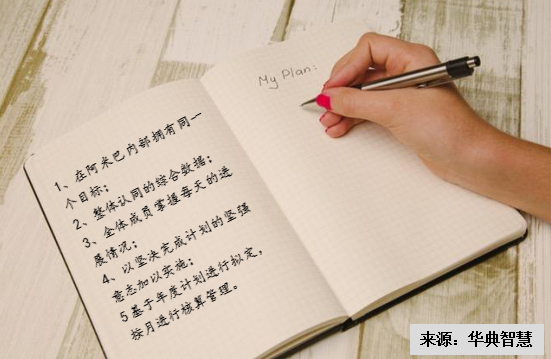 1、在阿米巴内部拥有同一
个目标；
2、整体认同的综合数据；
3、全体成员掌握每天的进
展情况；
4、以坚决完成计划的坚强
意志加以实施；
5基于年度计划进行拟定，
按月进行核算管理。
My Plan:
来源：华典智慧